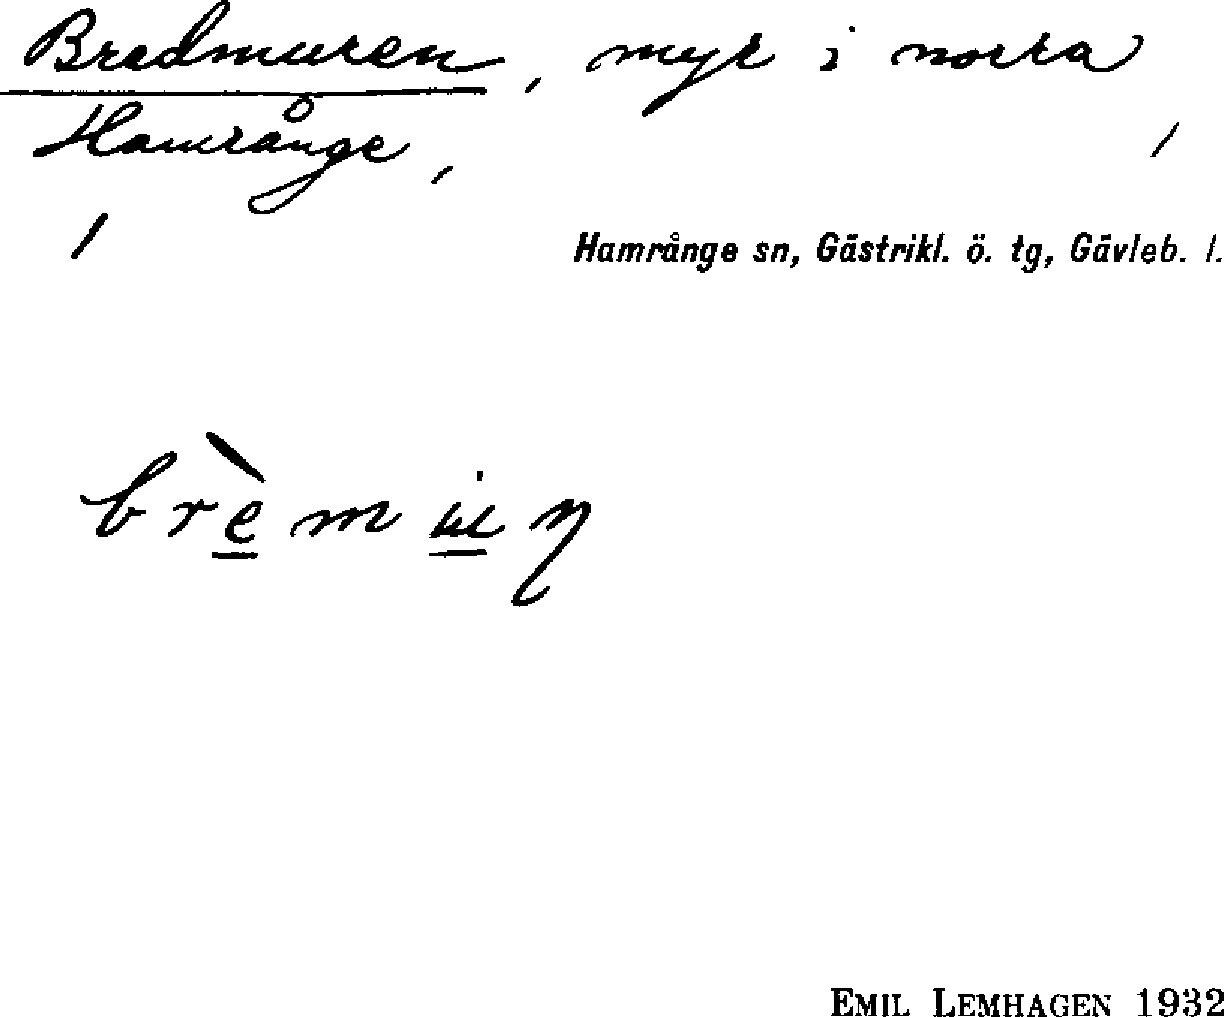 Bredmuren, myr i norra
Hamrånge,
Hamrånge sn, Gästrikl. ö. tg, Gävleb. l.
EMIL LEMHAGEN 1932